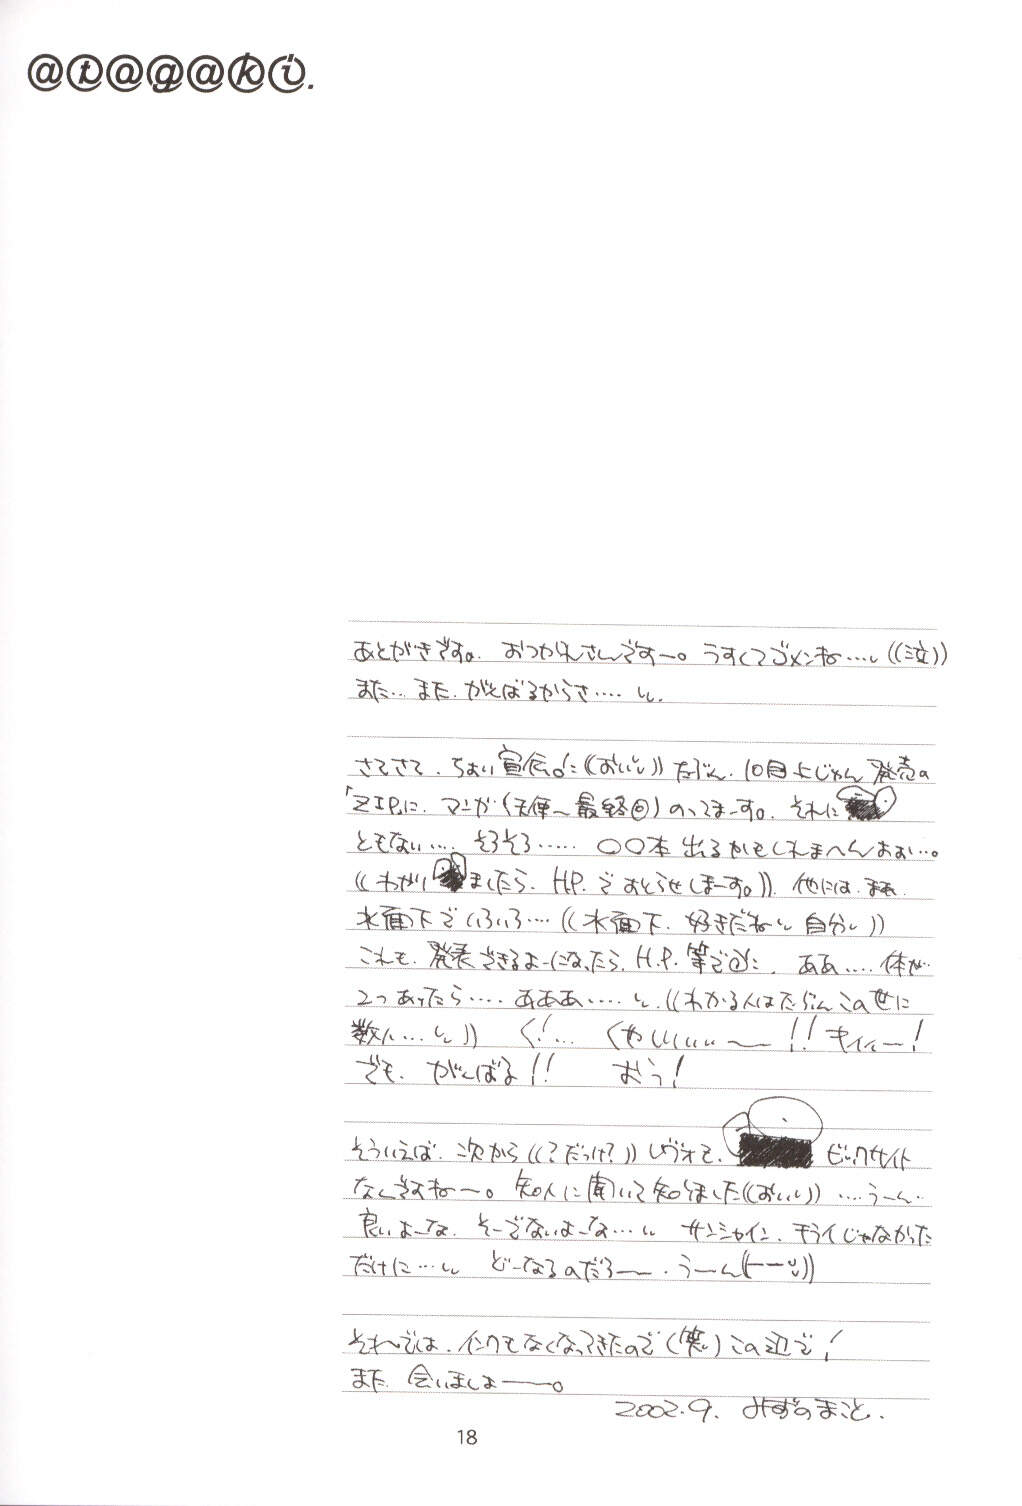 @t@g@ki.
あとがきです。おつかれさんですー。うすくてゴメンね…。((泣))
また… また、がんばるからさ……。
さてさて、ちょい宣伝。((おいい)) たぶん、10月上じゅん発売の
「ZIP」に、マンガ(天使〜最終回)のってまーす。それに
ともない…. そろそろ….. 〇〇本 出るかもしれまへんおぉ…。
((わかりましたら、H.P.でおしらせしまーす。)). 他には、まぁ、
水面下でいろいろ…. ((水面下、好きだねい 自分))
これも、発表できるよーになったら、H.P.等で。ああ….. 体が
2つあったら….. あぁああ….. ((わかる人はたぶんこの世に
数人….)) く!… くやしいぃぃ〜ー!! キイィー!
でも、がんばる!! おう!
そういえば、次から((?だっけ?))レヴォって、ビックサイト
なんですよねー。知人に聞いて知りました((おいい)) ….うーん..
良いよーな、そーでないよーな…. サンシャイン、キライじゃなかった
だけに…. どーなるのだろー. うーん
それでは、インクもなくなってきたので(笑) この辺で!
また、会いましょーー。
2002.9. みずのまこと.
18